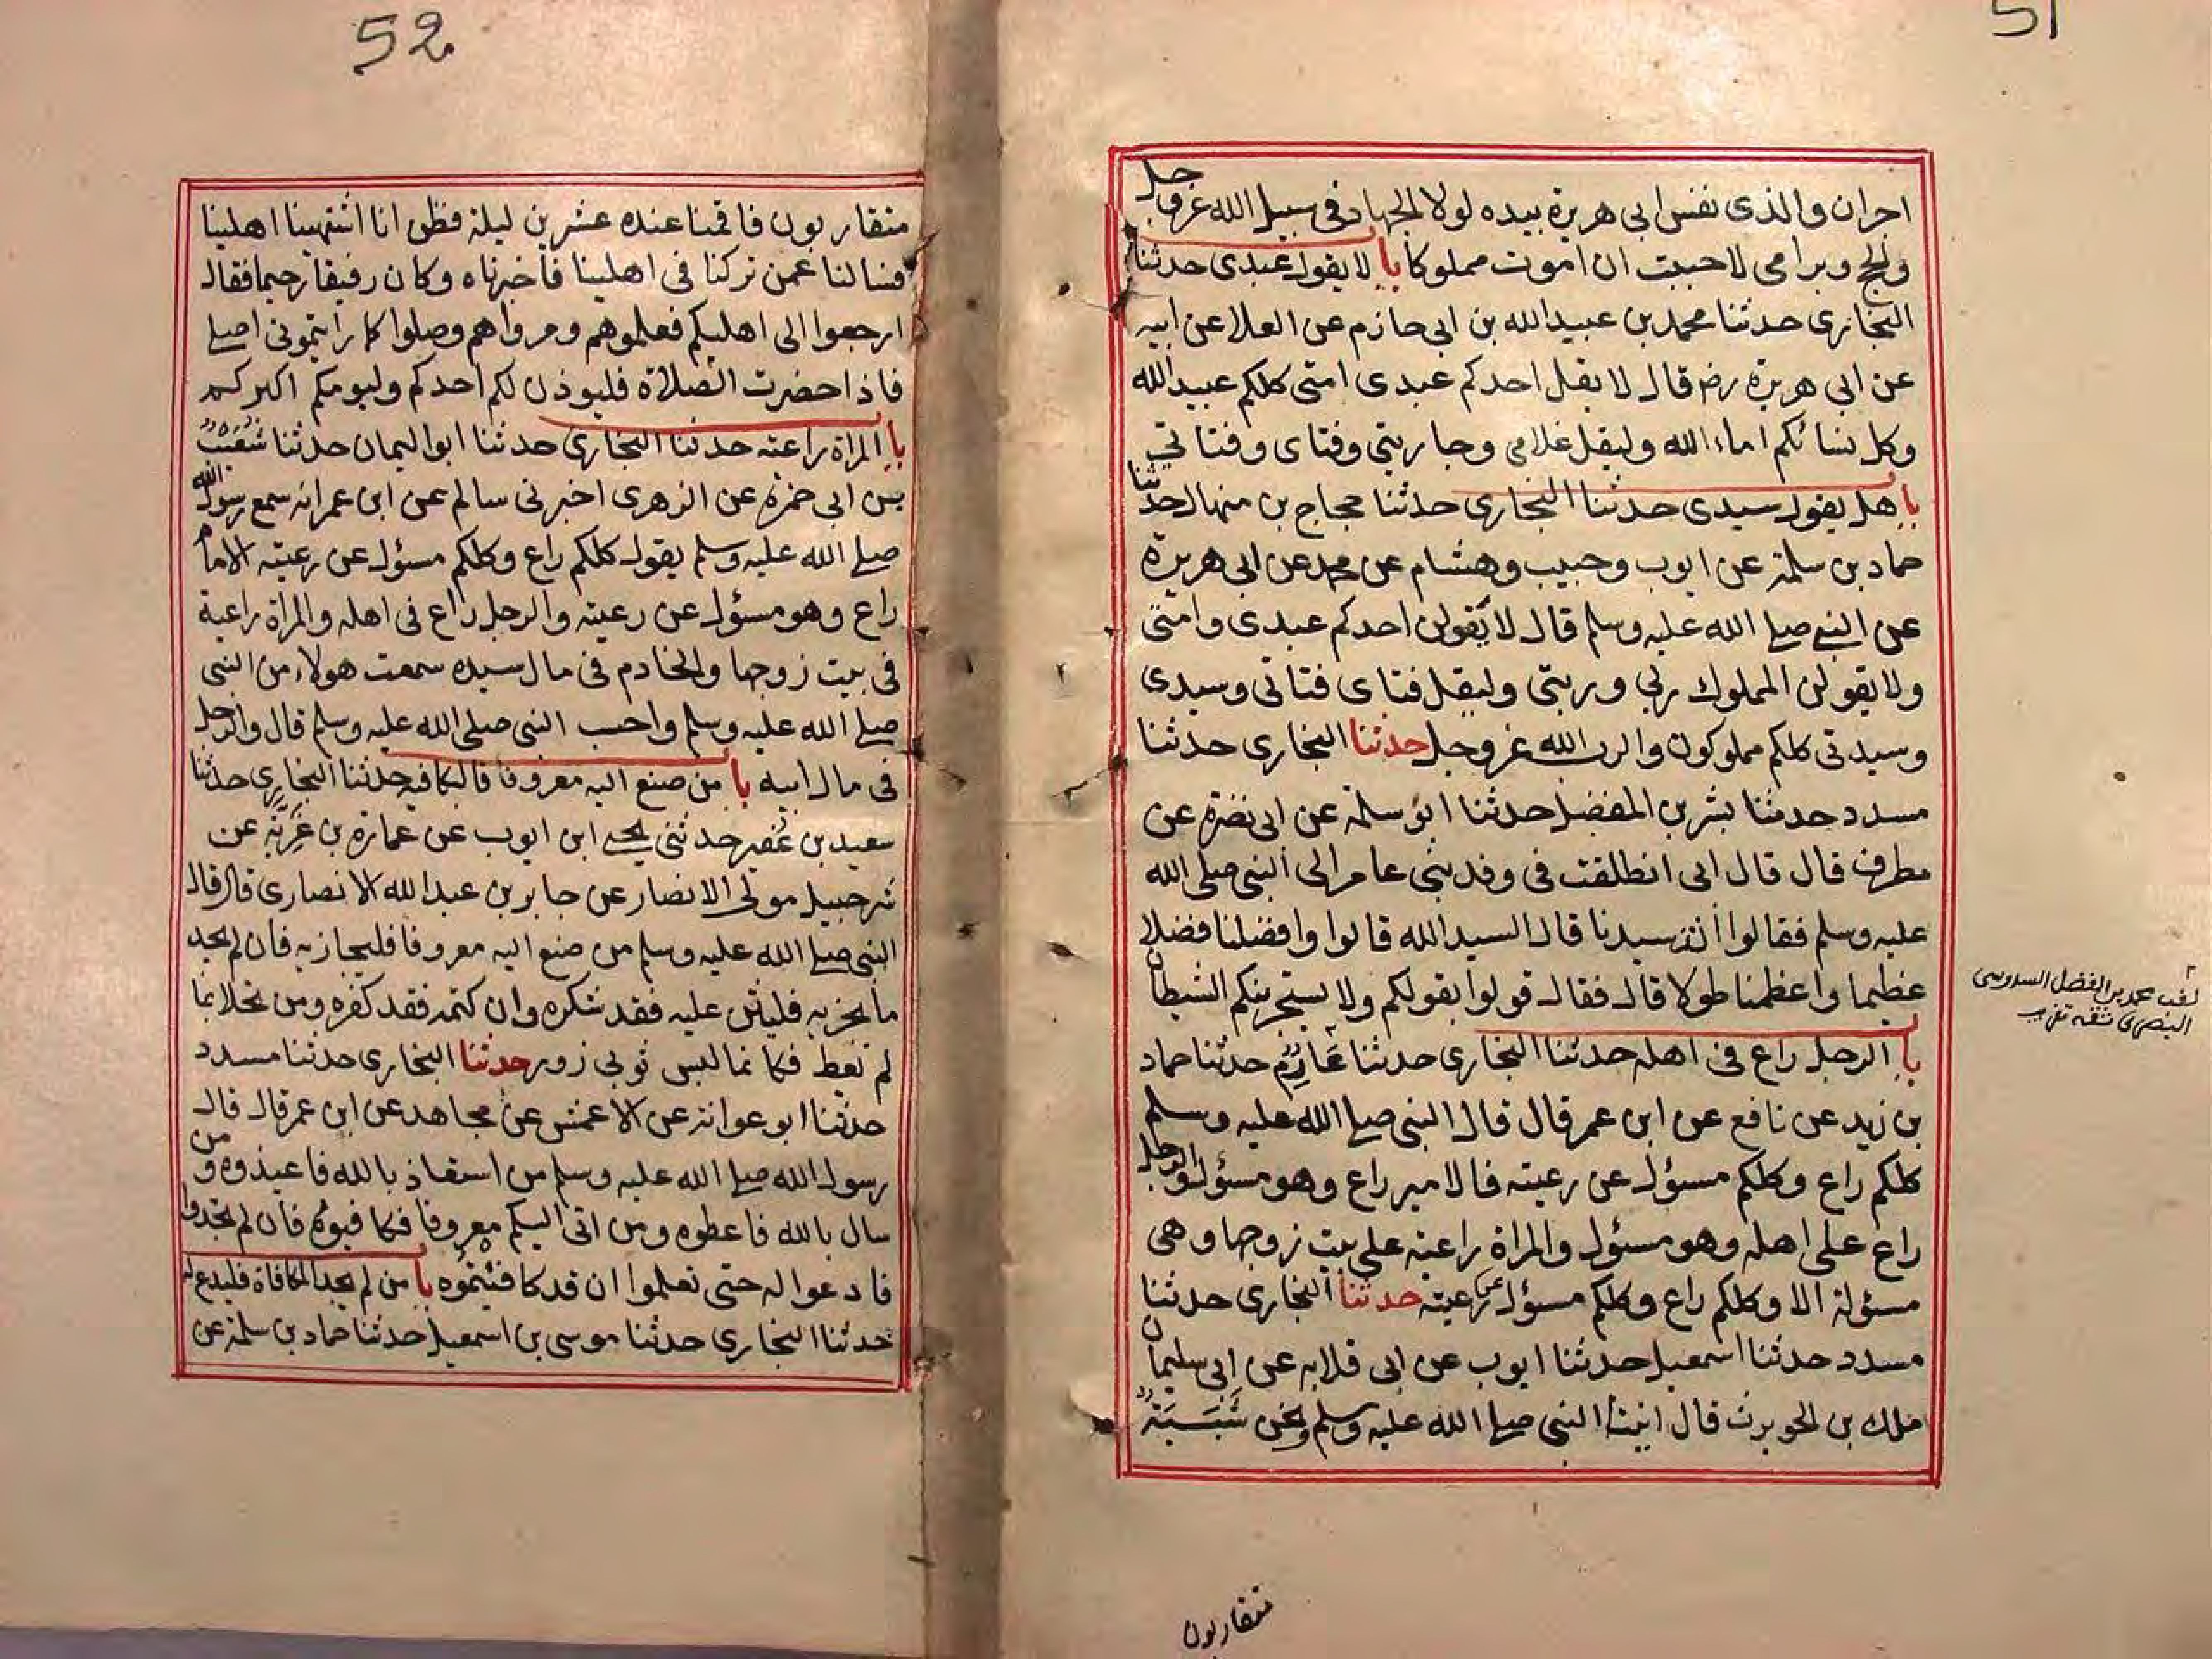 51
اجران والذى نفس ابى هريرة بيده لولا الجهاد فى سبيل الله عز وجل
والحج وبر امى لاحببت ان اموت مملوكا با لا يقول عبدى حدثنا
البخارى حدثنا محمد بن عبيد الله بن ابى حازم عن العلا عن ابيه
عن ابى هريرة رض قال لا يقل احدكم عبدى امتى كلكم عبيد الله
وكل نسائكم اماء الله وليقل غلامى وجاريتى وفتاى وفتاتى
با هل يقول سيدى حدثنا البخارى حدثنا حجاج بن منهال حدثنا
حماد بن سلمة عن ايوب وحبيب وهشام عن محمد عن ابى هريرة
عن النبى صلى الله عليه وسلم قال لا يقولن احدكم عبدى وامتى
ولا يقولن المملوك ربى وربتى وليقل فتاى فتاتى وسيدى
وسيدتى كلكم مملوكون والرب الله عز وجل حدثنا البخارى حدثنا
مسدد حدثنا بشر بن المفضل حدثنا ابو سلمة عن ابى نضرة عن
مطرف قال قال ابى انطلقت فى وفد بنى عامر الى النبى صلى الله
عليه وسلم فقالوا انت سيدنا قال السيد الله قالوا وافضلنا فضلا
عظيما واعظمنا طولا قال فقال قولوا بقولكم ولا يستجرينكم الشيطان
با الرجل راع فى اهله حدثنا البخارى حدثنا عَارِمٌ حدثنا حماد
بن زيد عن نافع عن ابن عمر قال قال النبى صلى الله عليه وسلم
كلكم راع وكلكم مسؤل عن رعيته فالامير راع وهو مسؤل والرجل
راع على اهله وهو مسؤل والمراة راعية على بيت زوجها وهى
مسئولة الا وكلكم راع وكلكم مسؤل عن رعيته حدثنا البخارى حدثنا
مسدد حدثنا اسمعيل حدثنا ايوب عن ابى قلابه عن ابى سليمان
ملك بن الحويرث قال اتينا النبى صلى الله عليه وسلم ونحن شَبَبَةٌ
لقب محمد بن الفضل السدوسى
البصرى ثقة تقريب
متقاربون
52
متقاربون فاقمنا عنده عشرين ليلة فظن انا اشتهينا اهلينا
فسالنا عمن تركنا فى اهلينا فاخبرناه وكان رفيقا رحيما فقال
ارجعوا الى اهليكم فعلموهم ومرواهم وصلوا كما رايتمونى اصلى
فاذا حضرت الصلاة فليوذن لكم احدكم وليومكم اكبركم
با المراة راعية حدثنا البخارى حدثنا ابو اليمان حدثنا شعيب
بن ابى حمزة عن الزهرى اخبرنى سالم عن ابن عمر انه سمع رسول الله
صلى الله عليه وسلم يقول كلكم راع وكلكم مسؤل عن رعيته الامام
راع وهو مسؤل عن رعيته والرجل راع فى اهله والمراة راعية
فى بيت زوجها والخادم فى مال سيده سمعت هولاء من النبى
صلى الله عليه وسلم واحسب النبى صلى الله عليه وسلم قال والرجل
فى مال ابيه با من صنع اليه معروفا فاليكافيه حدثنا البخارى حدثنا
سعيد بن عُفير حدثنى يحيى ابن ايوب عن عمارة بن غَزِيَّة عن
شرحبيل مولى الانصار عن جابر بن عبد الله الانصارى قال قال
النبى صلى الله عليه وسلم من صنع اليه معروفا فليجازيه فان لم يجد
ما يجزيه فليثن عليه فقد شكره وان كتمه فقد كفره ومن تحلا بما
لم تعط فكانما لبس ثوبى زور حدثنا البخارى حدثنا مسدد
حدثنا ابو عوانة عن الاعمش عن مجاهد عن ابن عمر قال قال
رسول الله صلى الله عليه وسلم من استعاذ بالله فاعيذوه ومن
سال بالله فاعطوه ومن اتى اليكم معروفا فكافيوه فان لم تجدوا
فادعوا له حتى تعلموا ان قد كافئتموه با من لم يجد المكافاة فليدع له
حدثنا البخارى حدثنا موسى بن اسمعيل حدثنا حماد بن سلمة عن